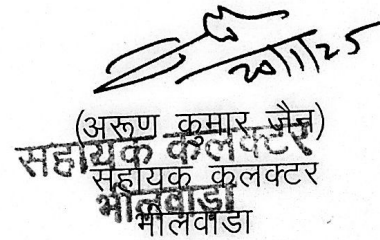 20/1/25
(अरूण कुमार जैन)
सहायक कलक्टर
सहायक कलक्टर
भीलवाड़ा
भीलवाडा